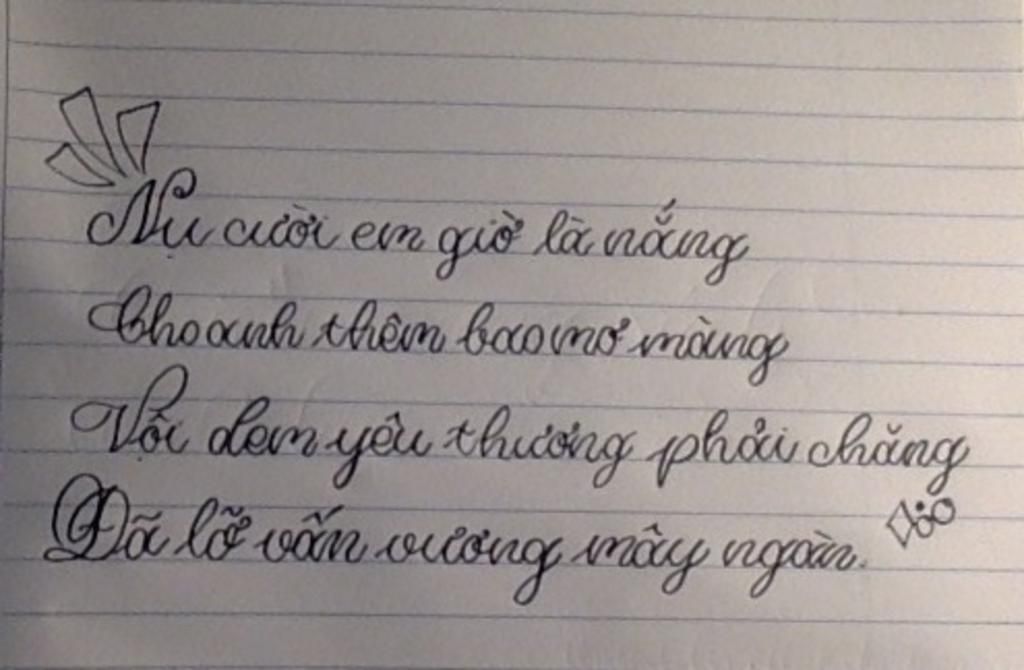 Nụ cười em giờ là nắng
Cho anh thêm bao mơ màng
Vội đem yêu thương phải chăng
Đã lỡ vấn vương mây ngàn.